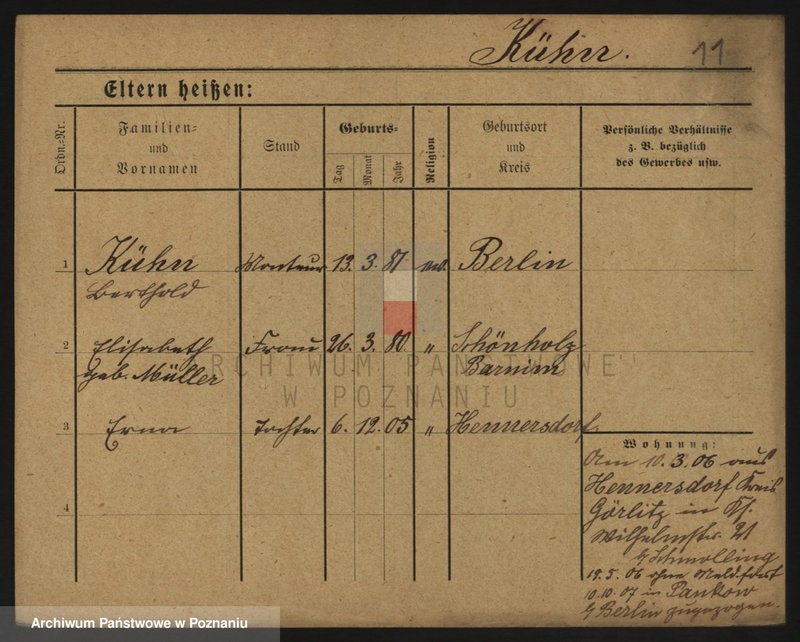 Kühn. 11
Eltern heißen:
Ordn.-Nr.
Familien-
und
Vornamen
Stand
Geburts-
Tag Monat Jahr
Religion
Geburtsort
und
Kreis
Persönliche Verhältnisse
z. B. bezüglich
des Gewerbes usw.
1 Kühn Monteur 13. 3. 81 ev. Berlin
Berthold
2 Elisabeth Frau 26. 3. 80 " Schönholz
geb. Müller Barnim
3 Erna Tochter 6. 12. 05 " Hennersdorf
4
Wohnung:
Am 10. 3. 06 aus
Hennersdorf Kreis
Görlitz in
Wilhelmstr. 21
b/ Schmolling
19. 5. 06 ohne
10. 10. 07 in Pankow
b/ Berlin zugezogen.
"ARCHIWUM PAŃSTWOWE"
W POZNANIU
Archiwum Państwowe w Poznaniu